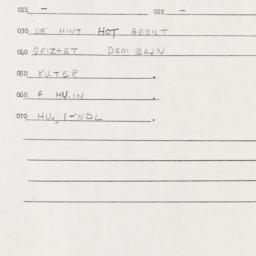 021 — 022 —
030 DE HINT HOT GEEILT
040 GRIZHET DEM BAJN
050 KU.TER .
060 A HU.IN .
070 HU., I-NDL .